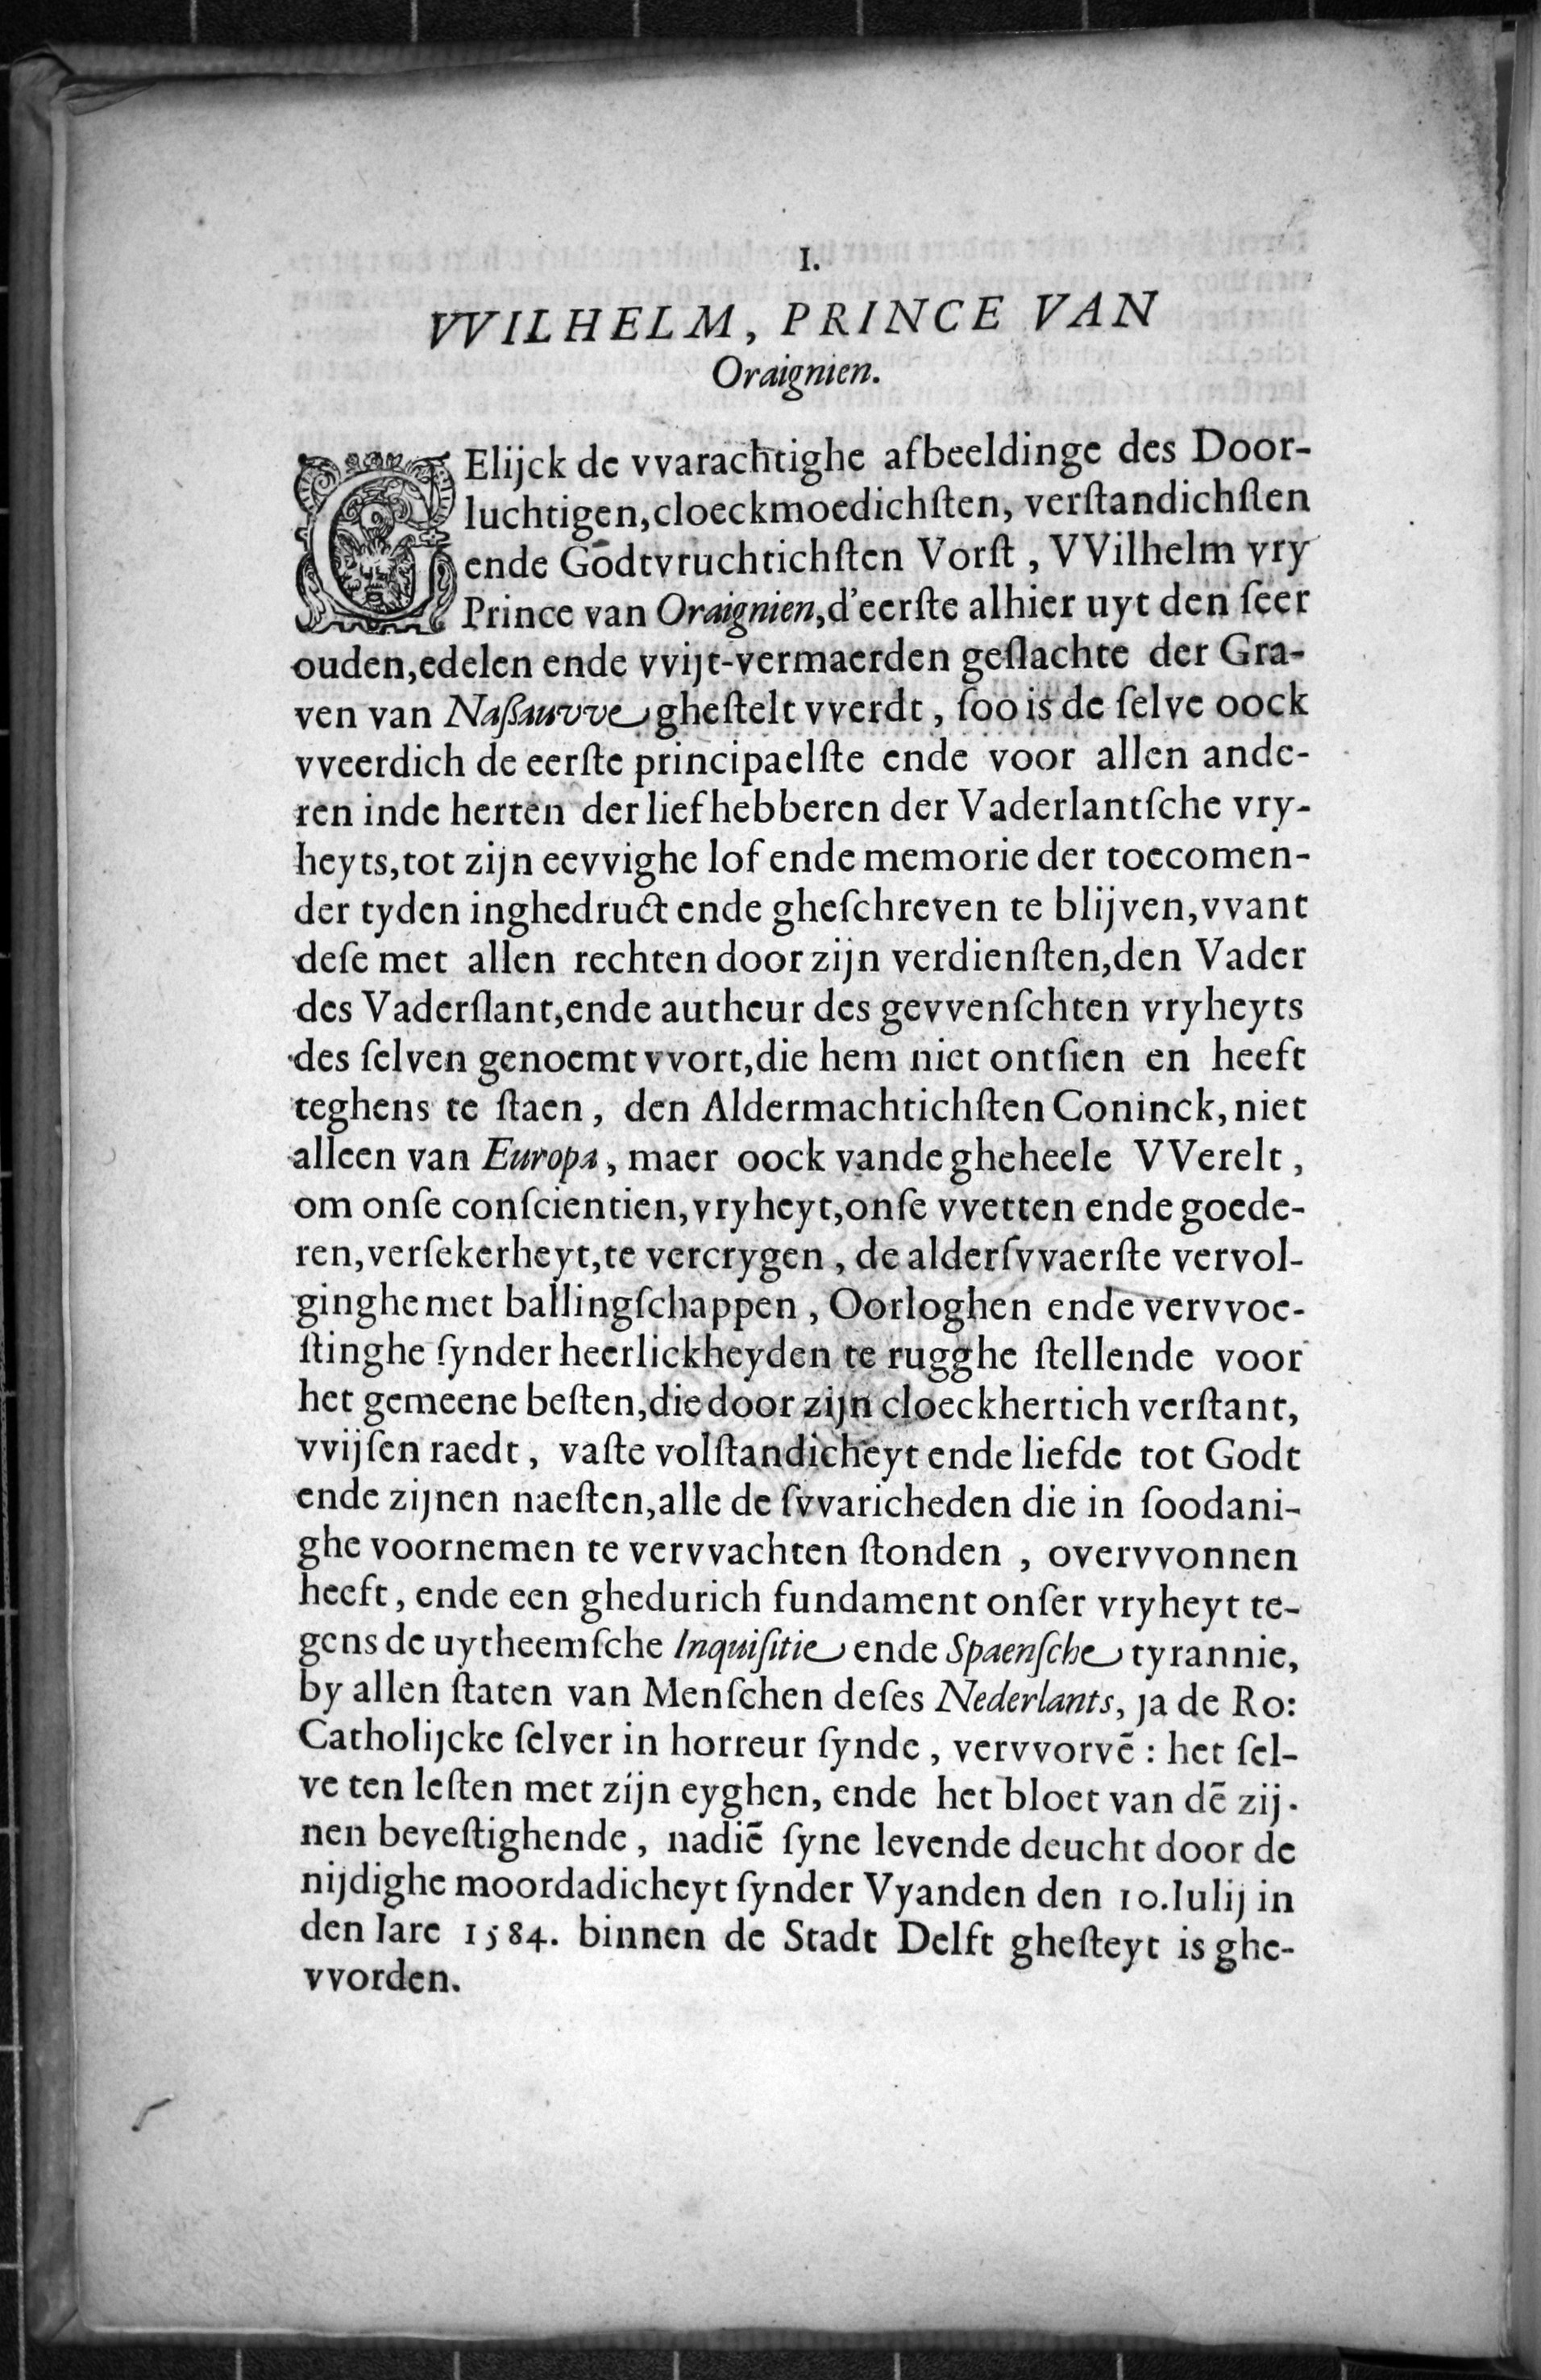 I.
VVILHELM, PRINCE VAN
Oraignien.
GElijck de vvarachtighe afbeeldinge des Door-
luchtigen,cloeckmoedichſten, verſtandichſten
ende Godtvruchtichſten Vorſt , VVilhelm vry
Prince van Oraignien,d'eerſte alhier uyt den ſeer
ouden,edelen ende vvijt-vermaerden geſlachte der Gra-
ven van Naßauvve gheſtelt vverdt , ſoo is de ſelve oock
vveerdich de eerſte principaelſte ende voor allen ande-
ren inde herten der liefhebberen der Vaderlantſche vry-
heyts,tot zijn eevvighe lof ende memorie der toecomen-
der tyden inghedruct ende gheſchreven te blijven,vvant
deſe met allen rechten door zijn verdienſten,den Vader
des Vaderſlant,ende autheur des gevvenſchten vryheyts
des ſelven genoemt vvort,die hem niet ontſien en heeft
teghens te ſtaen , den Aldermachtichſten Coninck, niet
alleen van Europa , maer oock vande gheheele VVerelt ,
om onſe conſcientien,vryheyt,onſe vvetten ende goede-
ren,verſekerheyt,te vercrygen , de alderſvvaerſte vervol-
ginghe met ballingſchappen , Oorloghen ende vervvoe-
ſtinghe ſynder heerlickheyden te rugghe ſtellende voor
het gemeene beſten,die door zijn cloeckhertich verſtant,
vvijſen raedt , vaſte volſtandicheyt ende liefde tot Godt
ende zijnen naeſten,alle de ſvvaricheden die in ſoodani-
ghe voornemen te vervvachten ſtonden , overvvonnen
heeft , ende een ghedurich fundament onſer vryheyt te-
gens de uytheemſche Inquiſitie ende Spaenſche tyrannie,
by allen ſtaten van Menſchen deſes Nederlants, ja de Ro:
Catholijcke ſelver in horreur ſynde , vervvorvē : het ſel-
ve ten leſten met zijn eyghen, ende het bloet van dē zij-
nen beveſtighende , nadiē ſyne levende deucht door de
nijdighe moordadicheyt ſynder Vyanden den 10.Iulij in
den Iare 1584. binnen de Stadt Delft gheſteyt is ghe-
vvorden.